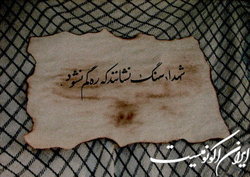 شهدا، سنگ نشانند که ره گم نشود.
ایران اکونومیست